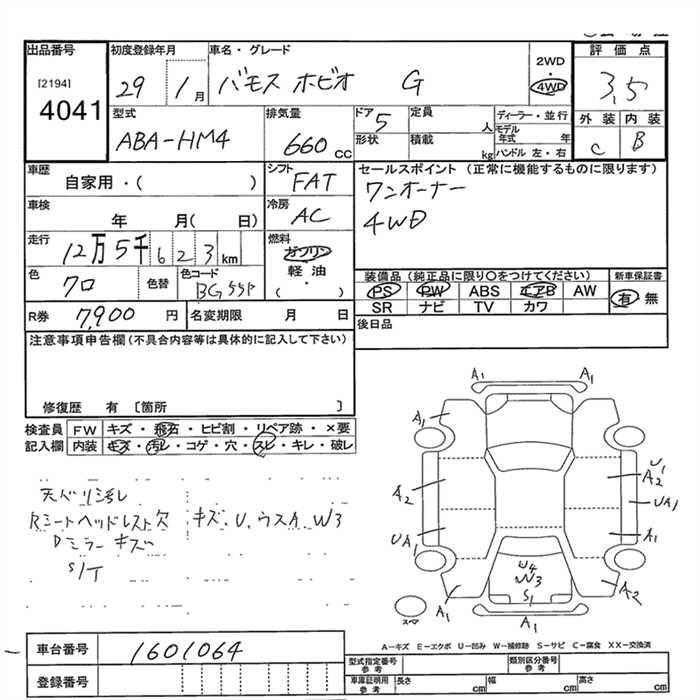 出品番号 初度登録年月 車名・グレード 2WD・4WD 評価点
[2194] 4041 29 1月 バモス ホビオ G 3,5
型式 排気量 ドア 5 定員 人 ディーラー・並行 外装 内装
ABA-HM4 660 cc 形状 積載 kg モデル年式 年 C B
ハンドル 左・右
車歴 シフト セールスポイント (正常に機能するものに限ります)
自家用・( ) FAT ワンオーナー
車検 冷房 4WD
年 月( 日) AC
走行 燃料
12万5千623km ガソリン
軽油
・
( )
色 色替 色コード 装備品 (純正品に限り〇をつけてください) 新車保証書
クロ BG55P PS PW ABS エアB AW 有 無
SR ナビ TV カワ
R券 7,900 円 名変期限 月 日 後日品
注意事項申告欄 (不具合内容等は具体的に記入して下さい)
修復歴 有 [箇所 ]
検査員 FW キズ・飛石・ヒビ割・リペア跡・×要
記入欄 内装 キズ・汚レ・コゲ・穴・スレ・キレ・破レ
天バリ汚レ
Rシートヘッドレスト欠 キズ、U、ウスA、W3
Dミラーキズ
S/T
A1 A1
A1
U1
A2 A2
UA1
UA1 A1
U4
W3
S1
A1 A2
A1
スペア
A-キズ E-エクボ U-凹み W-補修跡 S-サビ C-腐食 XX-交換済
車台番号 1601064
登録番号
型式指定番号 参考 類別区分番号 参考
車庫証明用 参考 長さ cm 幅 cm 高さ cm